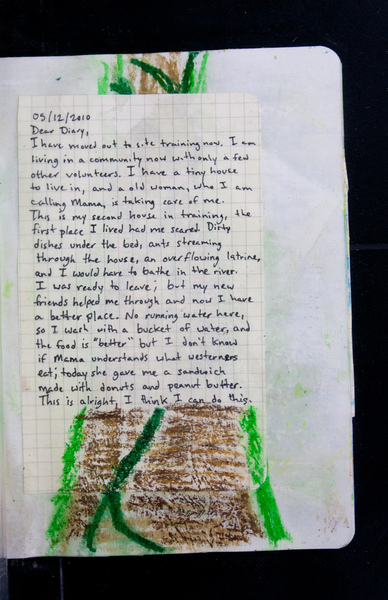 05/12/2010
Dear Diary,
I have moved out to site training now. I am
living in a community now with only a few
other volunteers. I have a tiny house
to live in, and a old woman, who I am
calling Mama, is taking care of me.
This is my second house in training, the
first place I lived had me scared. Dirty
dishes under the bed, ants streaming
through the house, an overflowing latrine,
and I would have to bathe in the river.
I was ready to leave; but my new
friends helped me through and now I have
a better place. No running water here,
so I wash with a bucket of water, and
the food is "better" but I don't know
if Mama understands what westerners
eat; today she gave me a sandwich
made with donuts and peanut butter.
This is alright, I think I can do this.